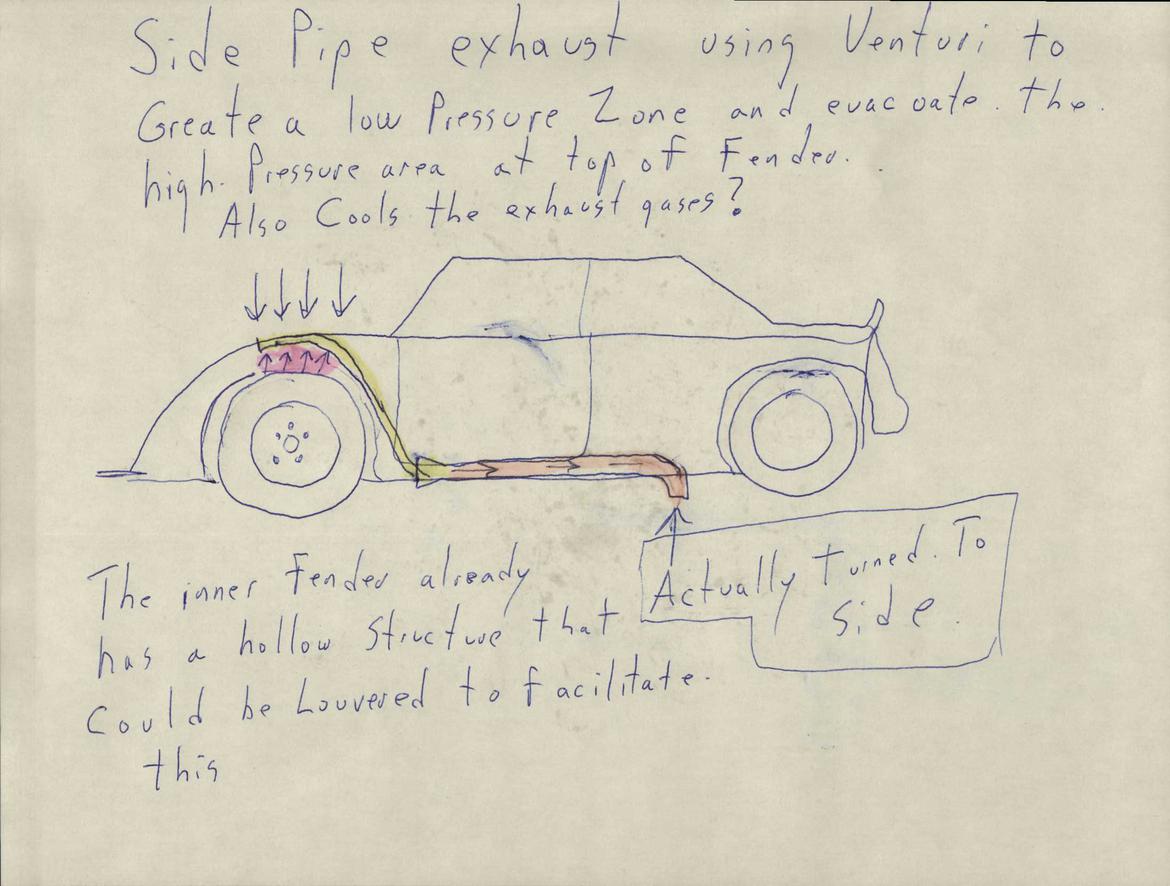 Side Pipe exhaust using Venturi to
Greate a low Pressure Zone and evacuate. the.
high. Pressure area at top of Fender.
Also Cools the exhaust gases?
The inner Fender already
has a hollow Structure that
Could be Louvered to facilitate.
this
Actually Turned. To
Side.